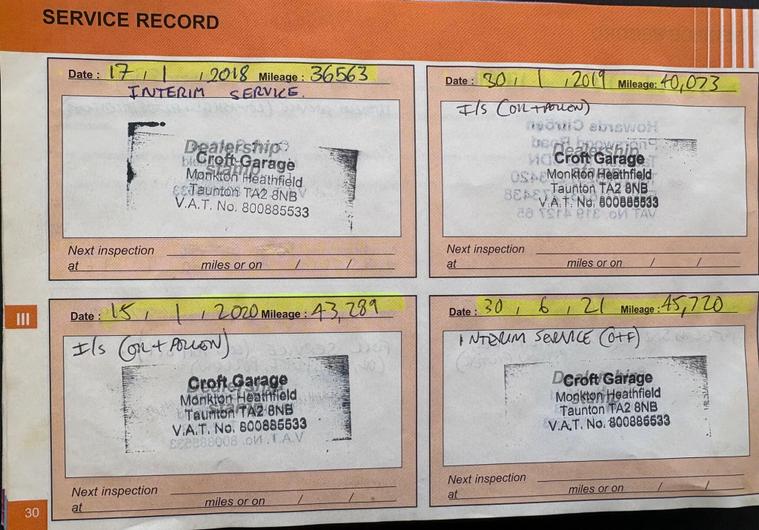 SERVICE RECORD
Date : 17 / 1 / 2018 Mileage : 36563
INTERIM SERVICE.
Dealership
Croft Garage
Monkton Heathfield
Taunton TA2 8NB
V.A.T. No. 800885533
Next inspection
at miles or on / /
Date : 30 / 1 / 2019 Mileage: 40,073
I/s (OIL + POLLEN)
Dealership
Croft Garage
Monkton Heathfield
Taunton TA2 8NB
V.A.T. No. 800885533
Next inspection
at miles or on / /
III
Date : 15 / 1 / 2020 Mileage : 43,289
I/s (OIL + POLLEN)
Croft Garage
Dealership
Monkton Heathfield
Taunton TA2 8NB
V.A.T. No. 800885533
Next inspection
at miles or on / /
Date : 30 / 6 / 21 Mileage : 45,720
INTERIM SERVICE (O+F)
Dealership
Croft Garage
Monkton Heathfield
Taunton TA2 8NB
V.A.T. No. 800885533
Next inspection
at miles or on / /
30